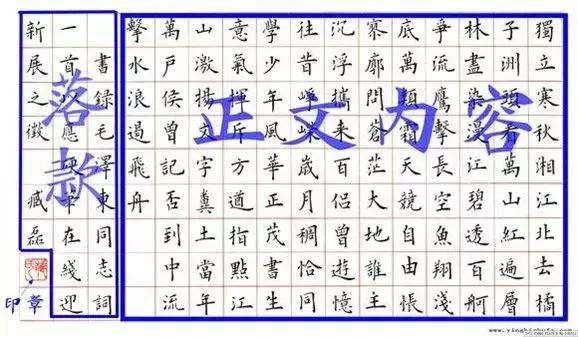 獨立寒秋湘江北去橘
子洲頭看萬山紅遍層
林盡染漫江碧透百舸
爭流鷹擊長空魚翔淺
底萬類霜天競自由悵
寥廓問蒼茫大地誰主
沉浮攜來百侶曾遊憶
往昔崢嶸歲月稠恰同
學少年風華正茂書生
意氣揮斥方遒指點江
山激揚文字糞土當年
萬戶侯曾記否到中流
擊水浪遏飛舟
書錄毛澤東同志詞
一首以應硬書在綫迎
新展之徵 臧磊
正文内容
落款
印章
www.yingbishufa.com